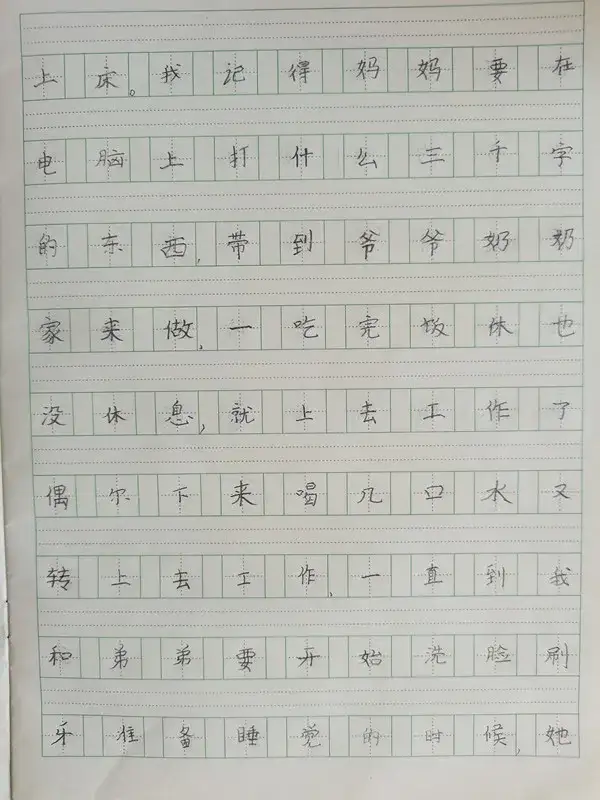 上床。我记得妈妈要在
电脑上打什么三千字
的东西,带到爷爷奶奶
家来做,一吃完饭休也
没休息,就上去工作了
偶尔下来喝几口水又
转上去工作,一直到我
和弟弟要开始洗脸刷
牙准备睡觉的时候,她